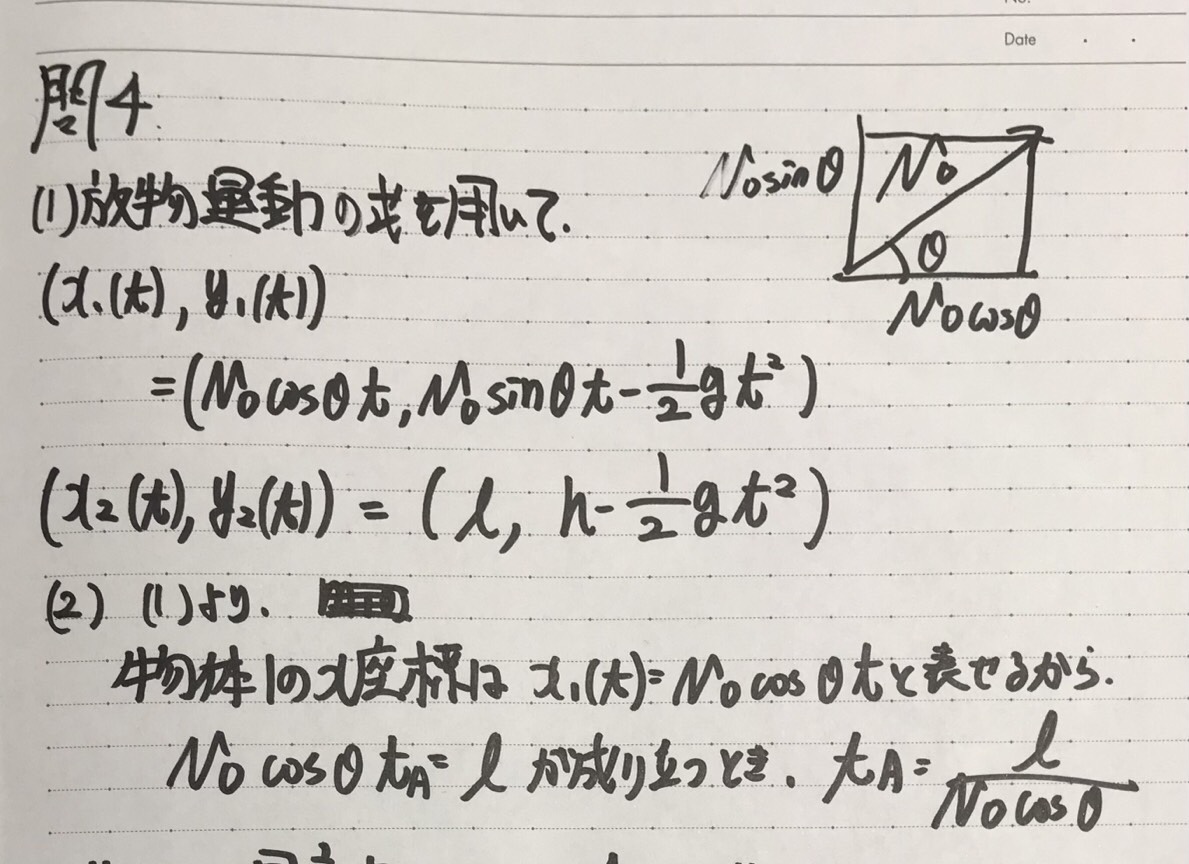 Date
問4.
(1)放物運動の式を用いて.
v₀sinθ
v₀
θ
v₀cosθ
(x₁(t), y₁(t))
=(v₀cosθt, v₀sinθt-1/2gt²)
(x₂(t), y₂(t)) = (l, h-1/2gt²)
(2) (1)より.
物体1のx座標は x₁(t)=v₀cosθtと表せるから.
v₀cosθt_A=l が成り立つとき. t_A=l/v₀cosθ